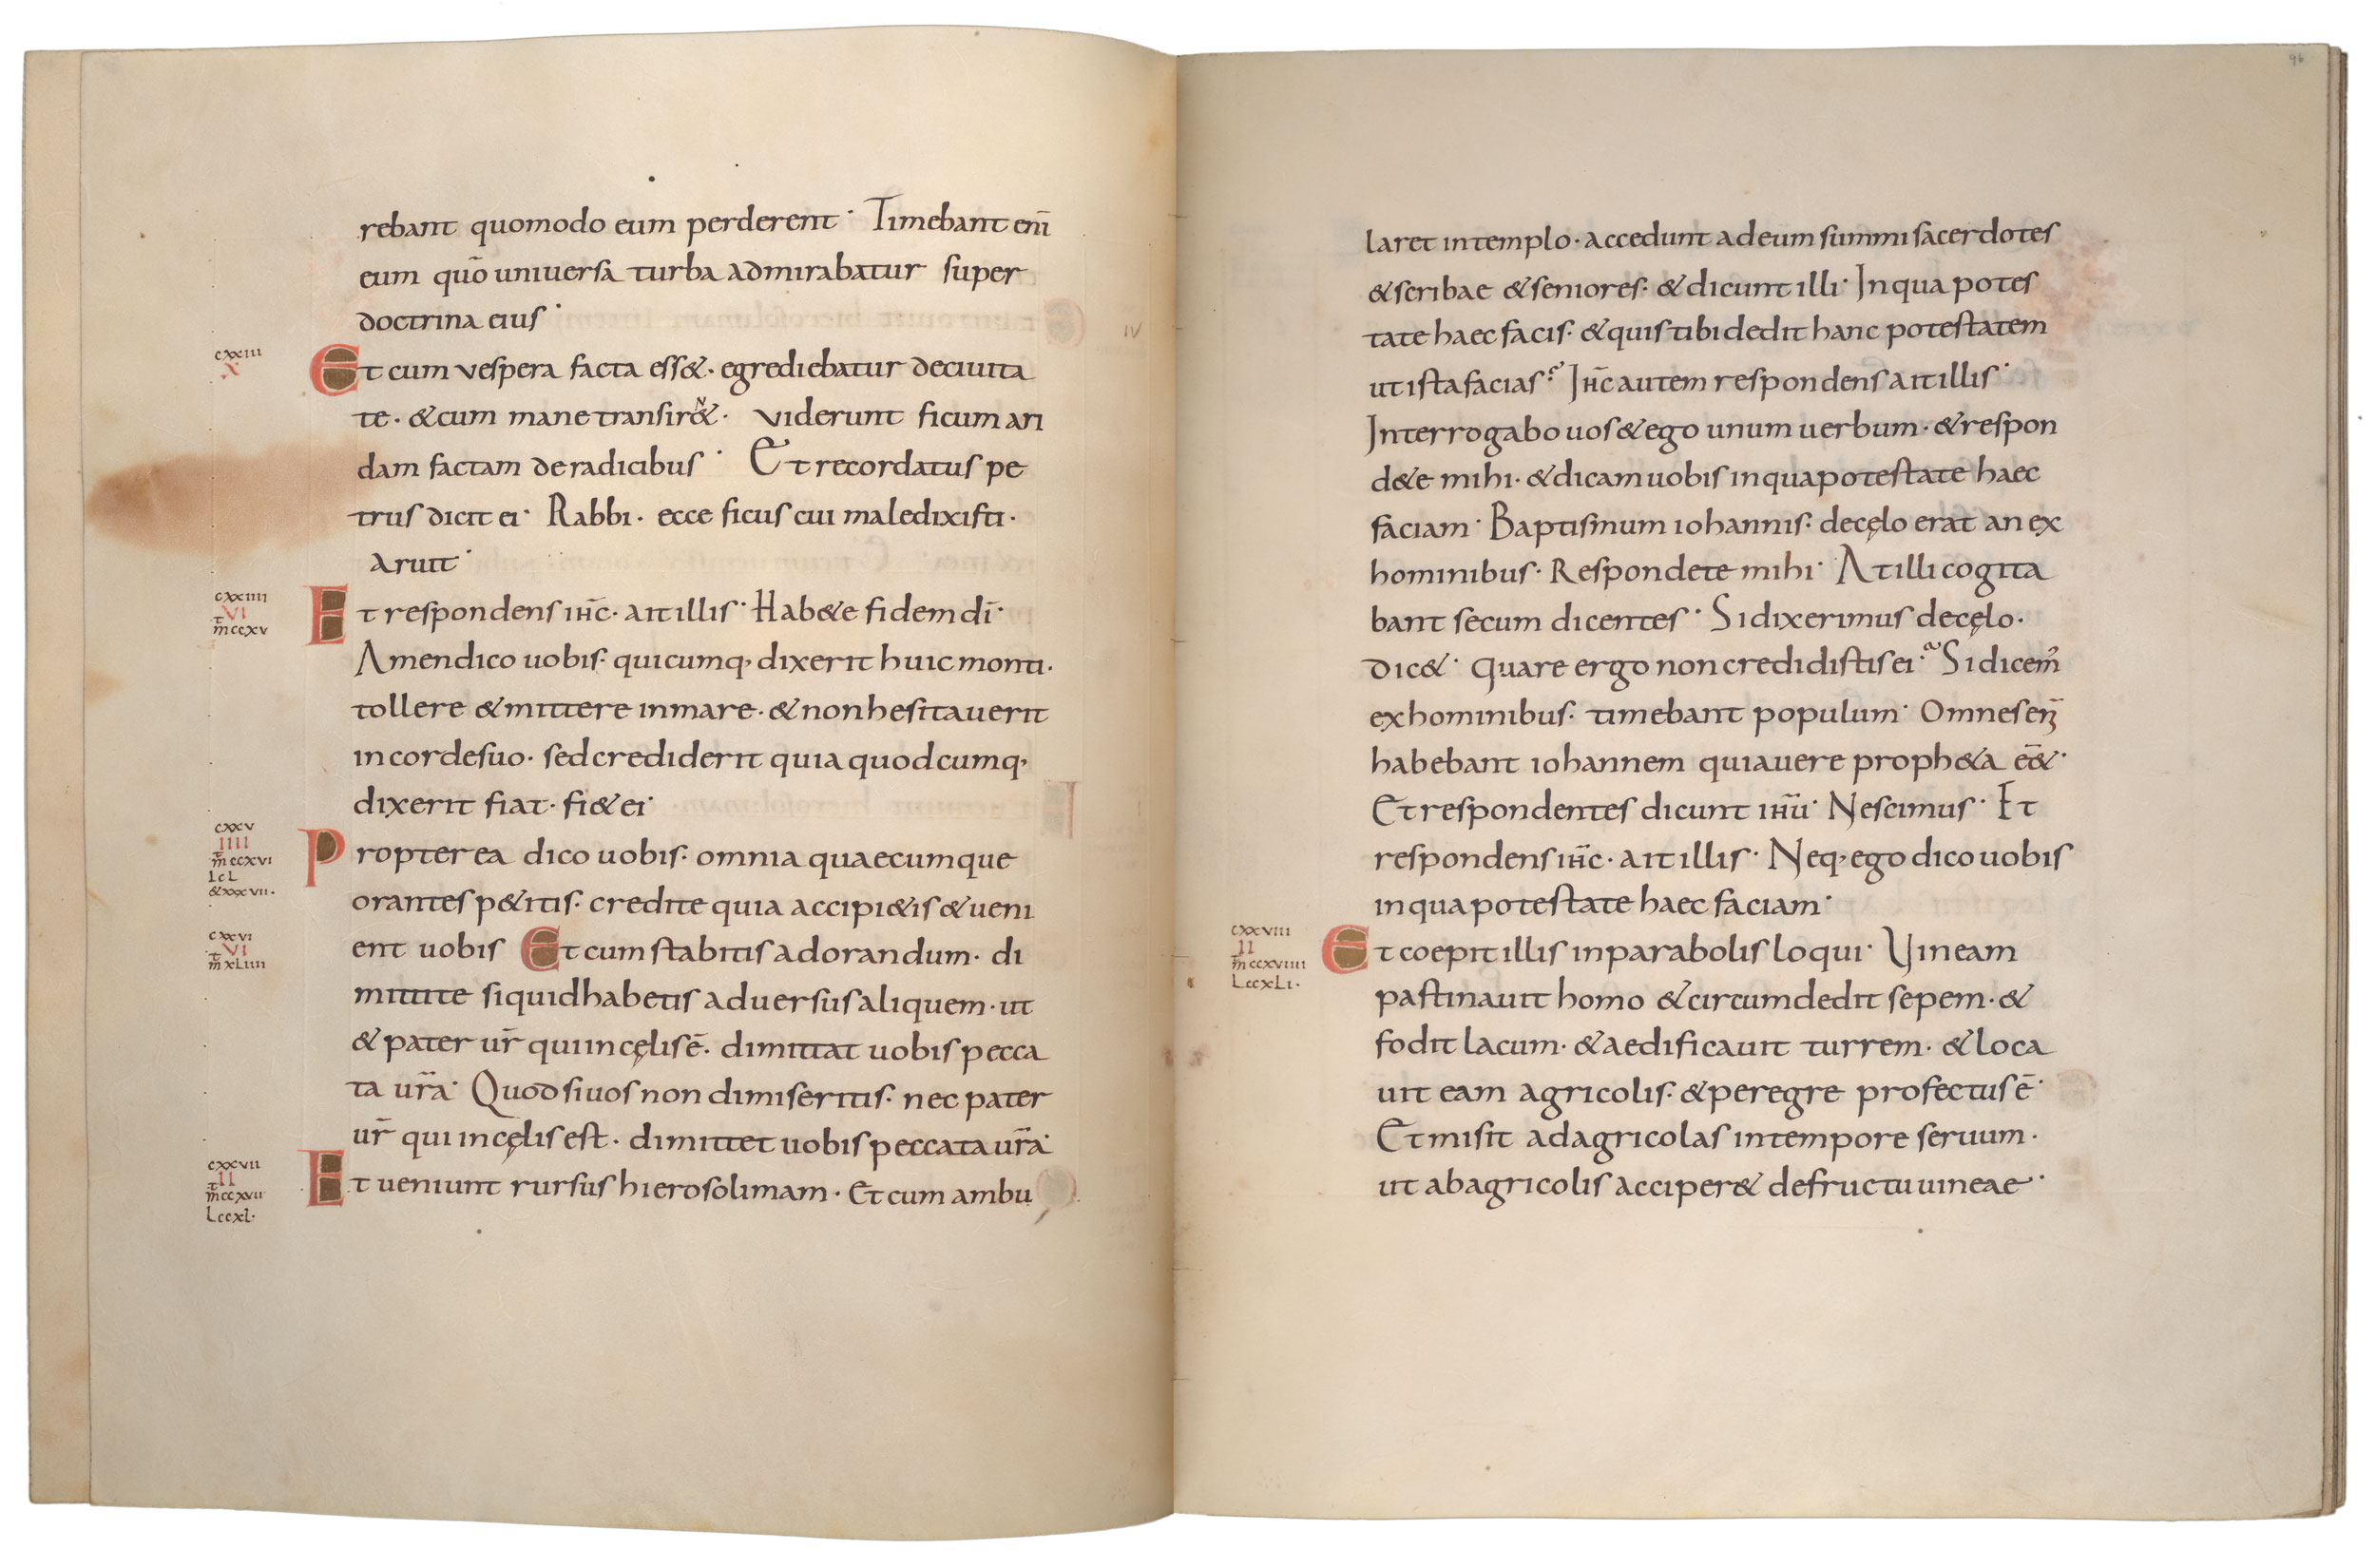 rebant quomodo eum perderent · Timebant enī
eum quō universa turba admirabatur super
doctrina eius ·
cxxiii
X
Et cum vespera facta ess&· egrediebatur deciuita
te· &cum mane transir&N· viderunt ficum ari
dam factam deradicibus · Et recordatus pe
trus dicit ei· Rabbi· ecce ficus cui maledixisti·
aruit·
cxxiiii
VI
mt ccxv
Et respondens ihc̄· ait illis· Hab&e fidem dī·
Amen dico uobis· quicumq, dixerit huic monti·
tollere &mittere inmare· &nonhesitauerit
in corde suo· sed crediderit quia quodcumq,
dixerit fiat· fi& ei·
cxxv
IIII
mt ccxvi
LcL
&xxxvii·
Propter ea dico uobis· omnia quaecumque
orantes p&itis· credite quia accipi&is &ueni
ent uobis Et cum stabitis ad orandum· di
cxxvi
VI
mt xLiiii
mittite siquid habetis aduersus aliquem· ut
& pater ur̄ qui incęlis ē· dimittat uobis pecca
ta ur̄a· Quod si uos non dimiseritis· nec pater
ur̄ qui incęlis est· dimittet uobis peccata ur̄a·
cxxvii
II
mt ccxvii
Lccxl·
Et ueniunt rursus hierosolimam· Et cum ambu
IV
96
laret in templo· accedunt ad eum summi sacerdotes
&scribae &seniores· &dicunt illi· In qua potes
tate haec facis· &quis tibi dedit hanc potestatem
ut ista facias? Ihc̄ autem respondens ait illis·
Interrogabo uos &ego unum uerbum· &respon
d&e mihi· &dicam uobis in qua potestate haec
faciam· Baptismum iohannis· decęlo erat an ex
hominibus· Respondete mihi· At illi cogita
bant secum dicentes· Si dixerimus decęlo·
dic&· quare ergo non credidistis ei? Si dicem᾽
ex hominibus· timebant populum· Omnes en̄
habebant iohannem quia uere proph&a ēē&·
Et respondentes dicunt ihū· Nescimus· Et
respondens ihc̄· ait illis· Neq, ego dico uobis
in qua potestate haec faciam·
cxxviii
II
mccxviiii
LccxLi·
Et coepit illis in parabolis loqui· Vineam
pastinauit homo &circumdedit sepem· &
fodit lacum· &aedificauit turrem· &loca
uit eam agricolis· &peregre profectus ē·
Et misit ad agricolas in tempore seruum·
ut ab agricolis acciper& de fructu uineae·